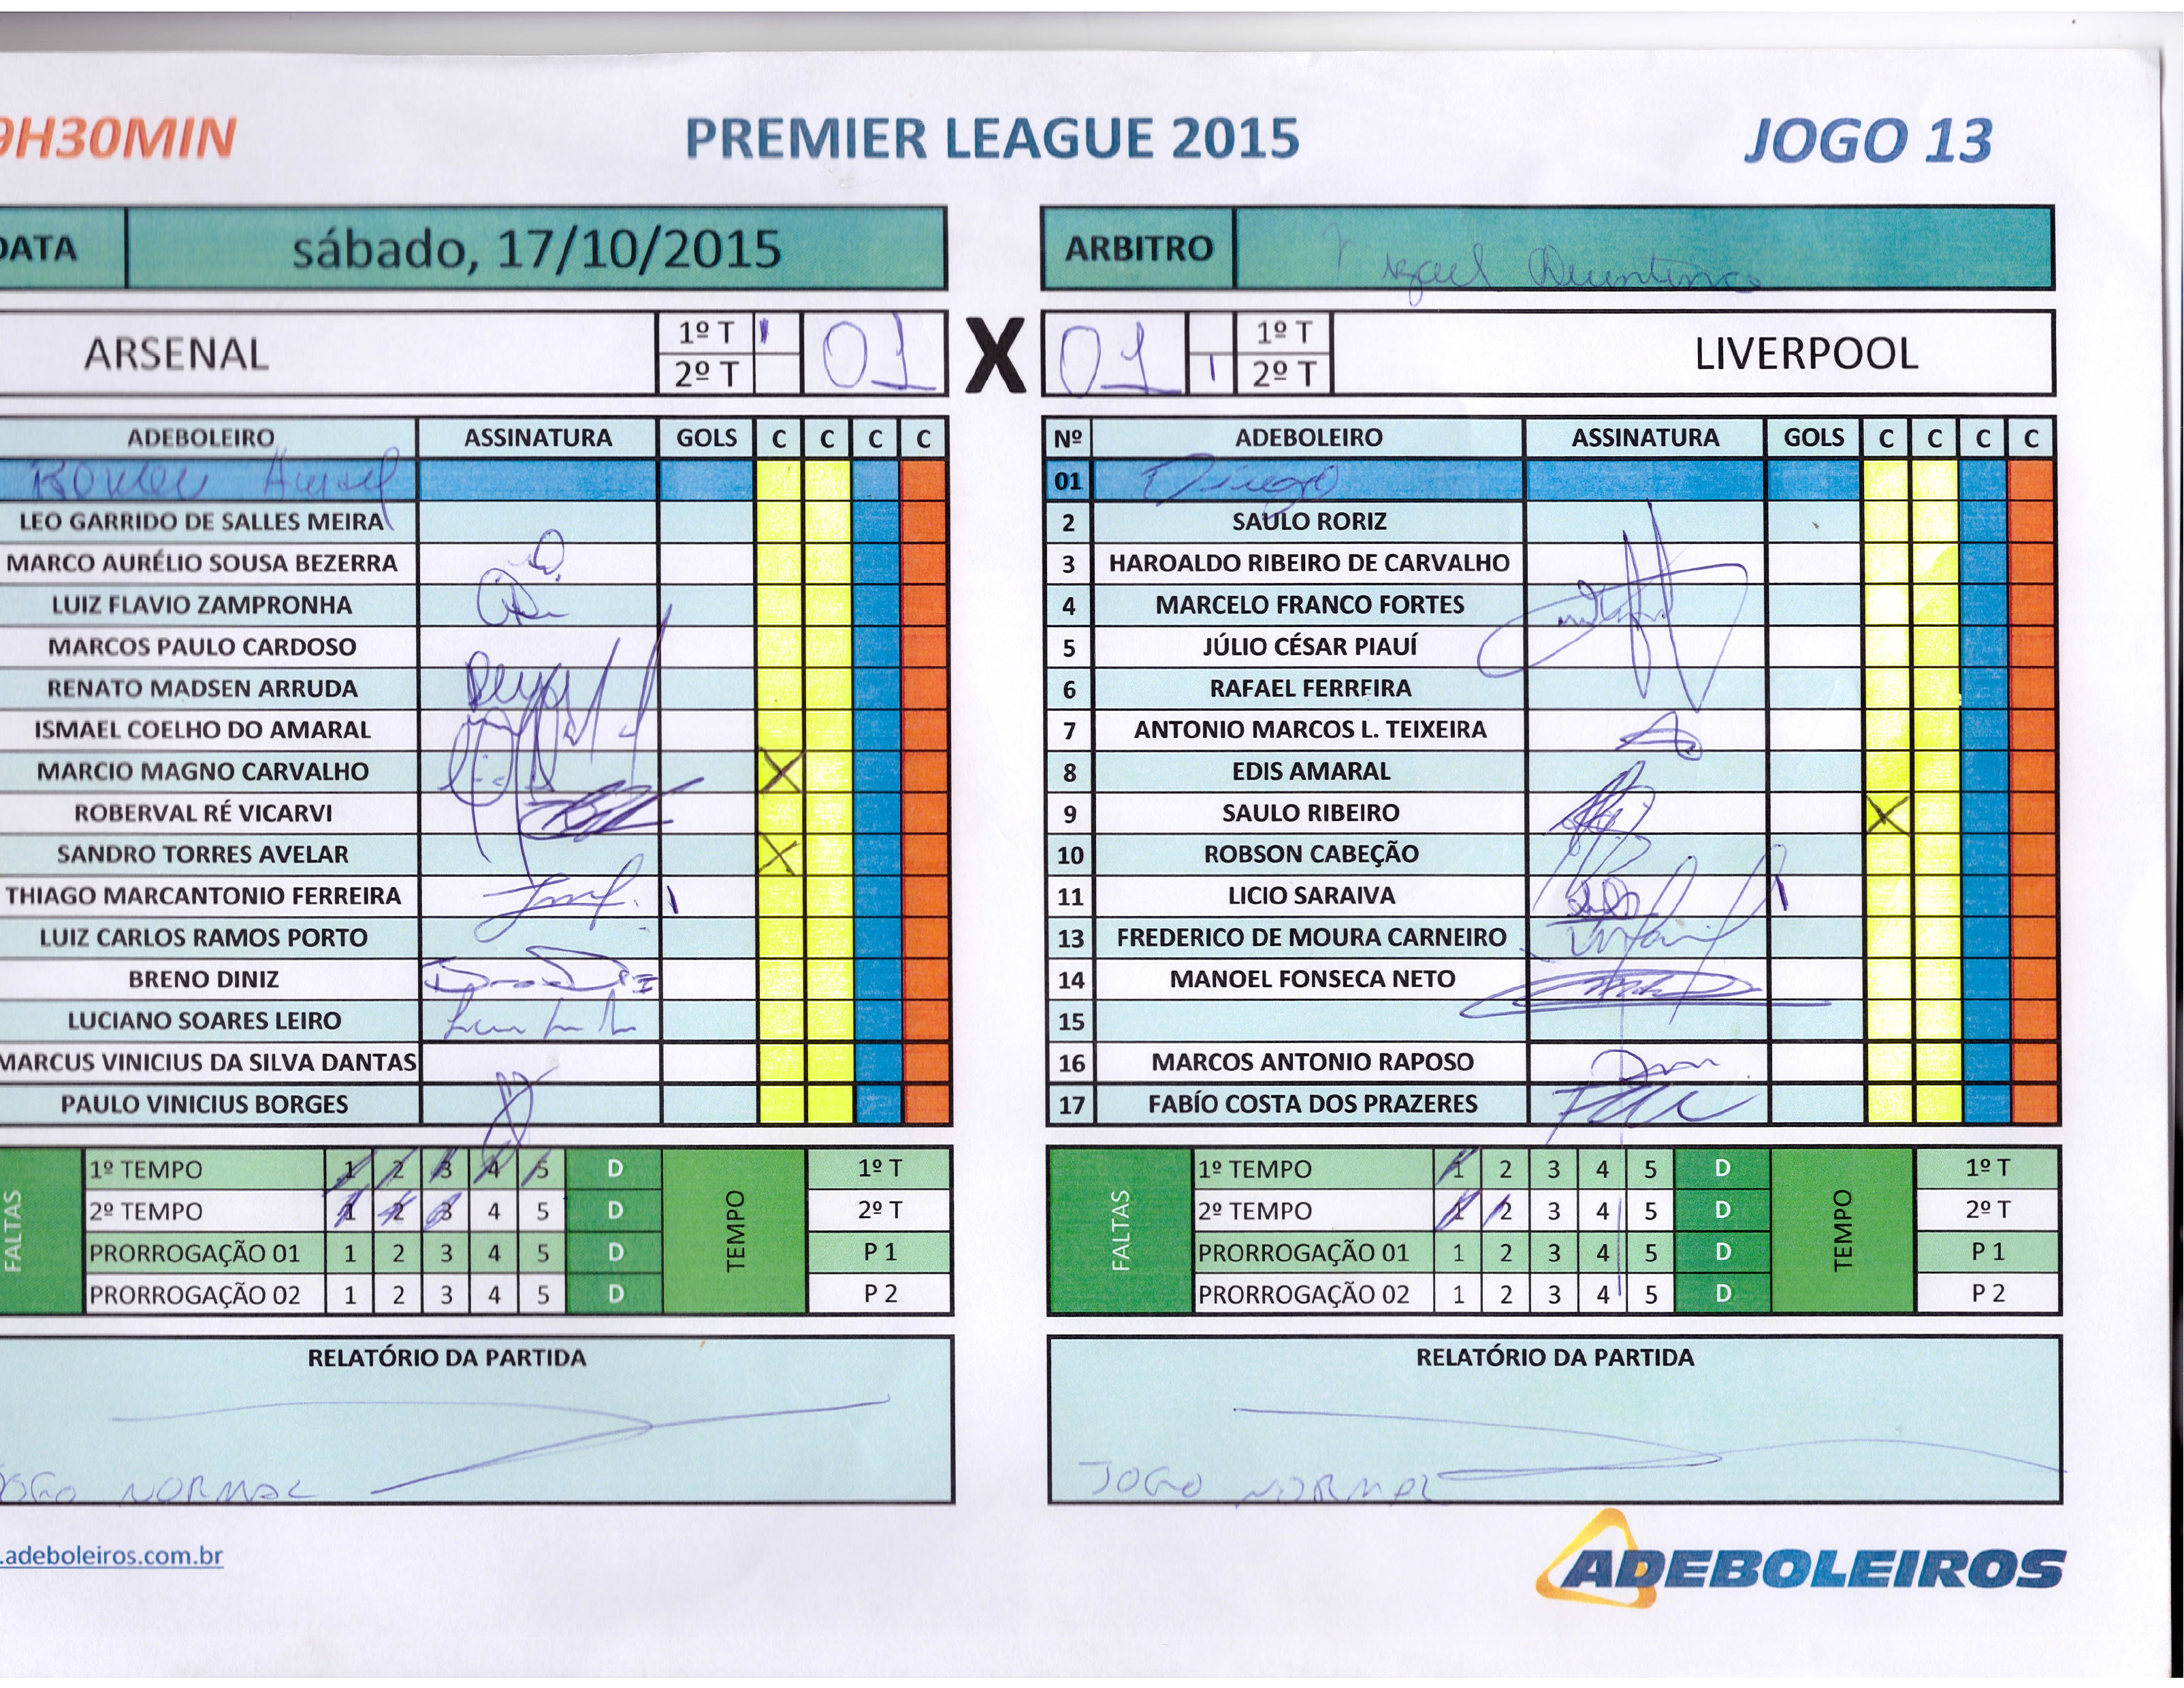 9H30MIN PREMIER LEAGUE 2015 JOGO 13
DATA sábado, 17/10/2015 ARBITRO
ARSENAL 1º T 1 01 X 01 1º T LIVERPOOL
2º T 1 2º T
ADEBOLEIRO ASSINATURA GOLS C C C C Nº ADEBOLEIRO ASSINATURA GOLS C C C C
01 Diego
LEO GARRIDO DE SALLES MEIRA 2 SAULO RORIZ
MARCO AURÉLIO SOUSA BEZERRA 3 HAROALDO RIBEIRO DE CARVALHO
LUIZ FLAVIO ZAMPRONHA 4 MARCELO FRANCO FORTES
MARCOS PAULO CARDOSO 5 JÚLIO CÉSAR PIAUÍ
RENATO MADSEN ARRUDA 6 RAFAEL FERREIRA
ISMAEL COELHO DO AMARAL 7 ANTONIO MARCOS L. TEIXEIRA
MARCIO MAGNO CARVALHO X 8 EDIS AMARAL
ROBERVAL RÉ VICARVI 9 SAULO RIBEIRO X
SANDRO TORRES AVELAR X 10 ROBSON CABEÇÃO
THIAGO MARCANTONIO FERREIRA 1 11 LICIO SARAIVA 1
LUIZ CARLOS RAMOS PORTO 13 FREDERICO DE MOURA CARNEIRO
BRENO DINIZ 14 MANOEL FONSECA NETO
LUCIANO SOARES LEIRO 15
MARCUS VINICIUS DA SILVA DANTAS 16 MARCOS ANTONIO RAPOSO
PAULO VINICIUS BORGES 17 FABÍO COSTA DOS PRAZERES
FALTAS 1º TEMPO 1 2 3 4 5 D TEMPO 1º T FALTAS 1º TEMPO 1 2 3 4 5 D TEMPO 1º T
2º TEMPO 1 2 3 4 5 D 2º T 2º TEMPO 1 2 3 4 5 D 2º T
PRORROGAÇÃO 01 1 2 3 4 5 D P 1 PRORROGAÇÃO 01 1 2 3 4 5 D P 1
PRORROGAÇÃO 02 1 2 3 4 5 D P 2 PRORROGAÇÃO 02 1 2 3 4 5 D P 2
RELATÓRIO DA PARTIDA RELATÓRIO DA PARTIDA
JOGO NORMAL JOGO NORMAL
.adeboleiros.com.br ADEBOLEIROS